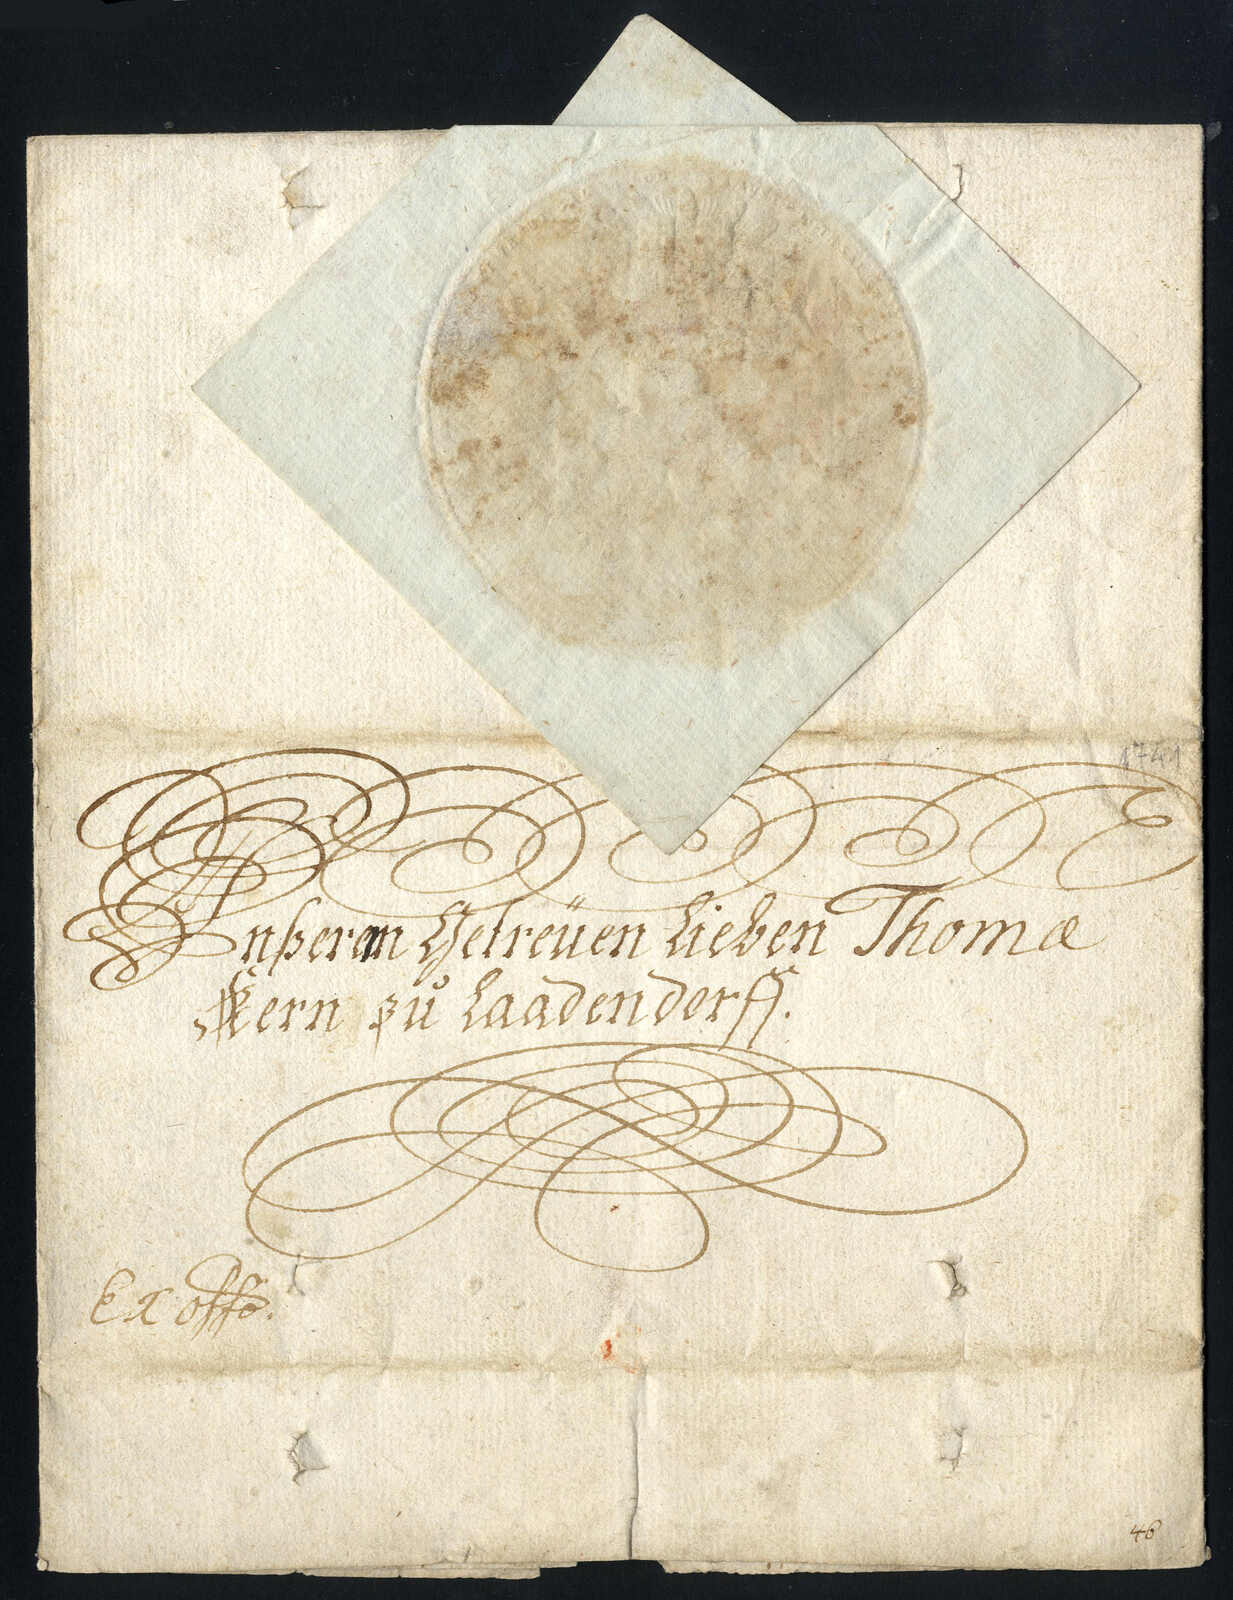 1741
Unßerm Getreüen Lieben Thomæ
Kern zu Laadendorff.
Ex offo.
46